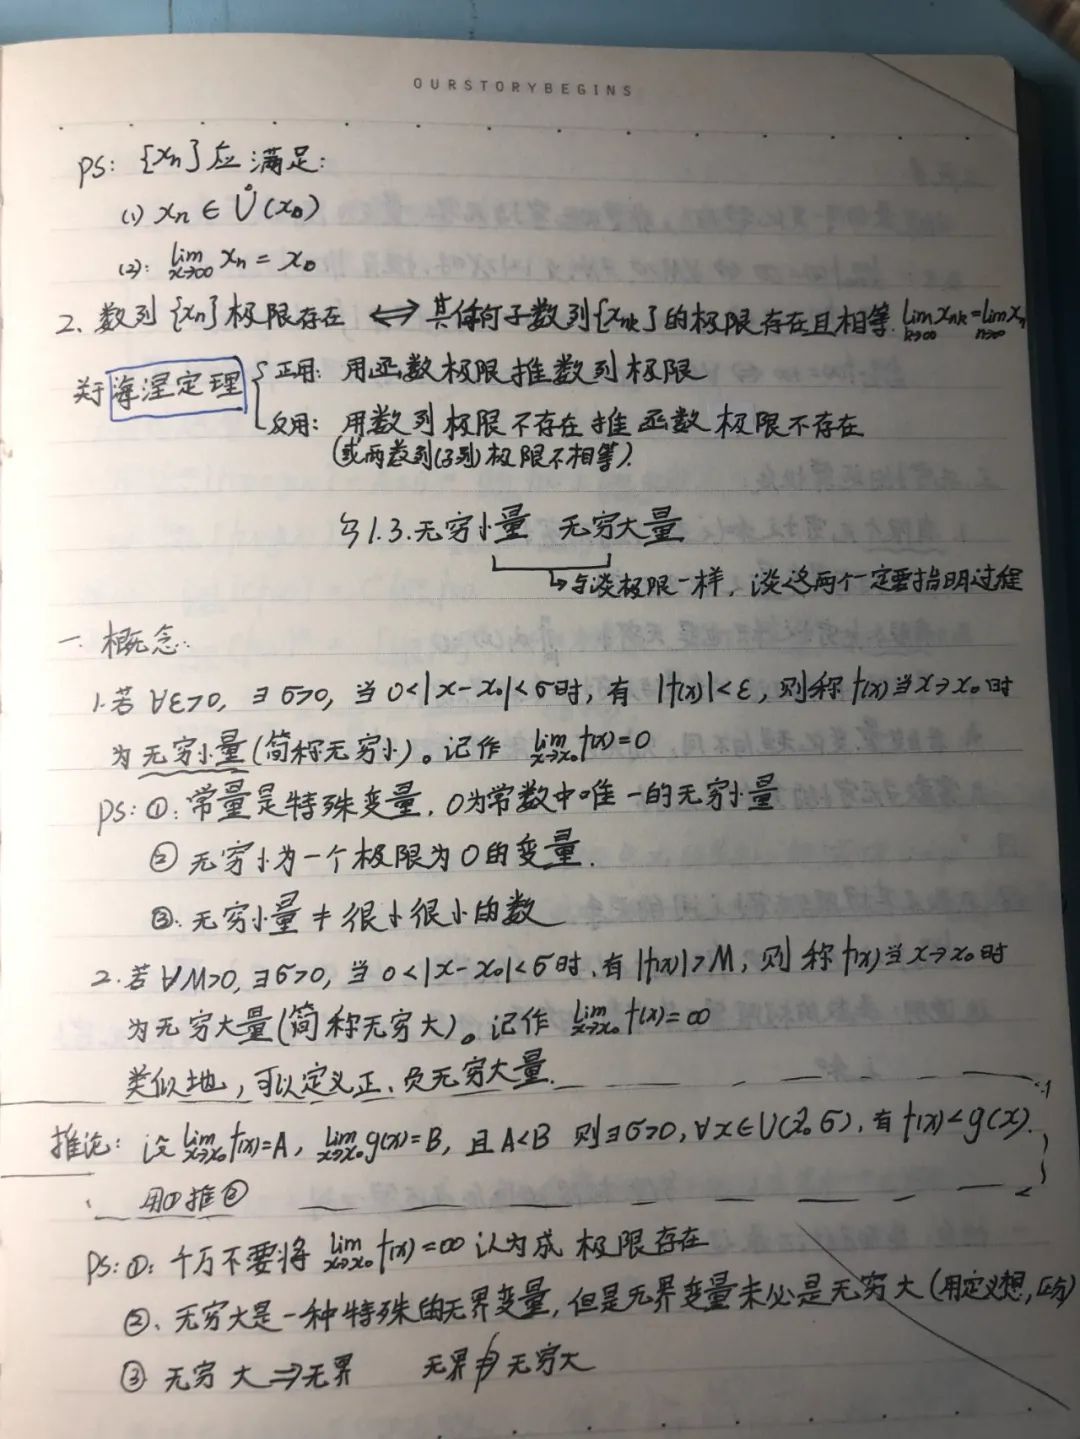 OURSTORYBEGINS
PS: {xn}应满足:
(1) xn ∈ Ů(x0)
(2): lim x→∞ xn = x0
2、数列{xn}极限存在 <=> 其任何子数列{xnk}的极限存在且相等. lim k→∞ xnk = lim n→∞ xn
关于海涅定理 { 正用: 用函数极限推数列极限
反用: 用数列极限不存在推函数极限不存在
(或两数列(子列)极限不相等).
§1.3.无穷小量 无穷大量
↳与谈极限一样, 谈这两个一定要指明过程
一. 概念:
1.若 ∀ε>0, ∃ δ>0, 当 0<|x-x0|<δ时, 有 |f(x)|<ε, 则称 f(x)当x→x0时
为无穷小量(简称无穷小)。记作 lim x→x0 f(x)=0
PS: ①: 常量是特殊变量, 0为常数中唯一的无穷小量
② 无穷小为一个极限为0的变量.
③. 无穷小量≠很小很小的数
2.若∀M>0, ∃δ>0, 当 0<|x-x0|<δ时, 有|f(x)|>M, 则称f(x)当x→x0时
为无穷大量(简称无穷大)。记作 lim x→x0 f(x)=∞
类似地, 可以定义正、负无穷大量.
推论: 设 lim x→x0 f(x)=A, lim x→x0 g(x)=B, 且A<B 则∃δ>0, ∀x∈U(x0 δ), 有f(x)<g(x).
用①推②
PS: ①: 千万不要将 lim x→x0 f(x)=∞ 认为成 极限存在
②、无穷大是一种特殊的无界变量, 但是无界变量未必是无穷大(用定义想,区分)
③ 无穷大⇒无界 无界⇏无穷大